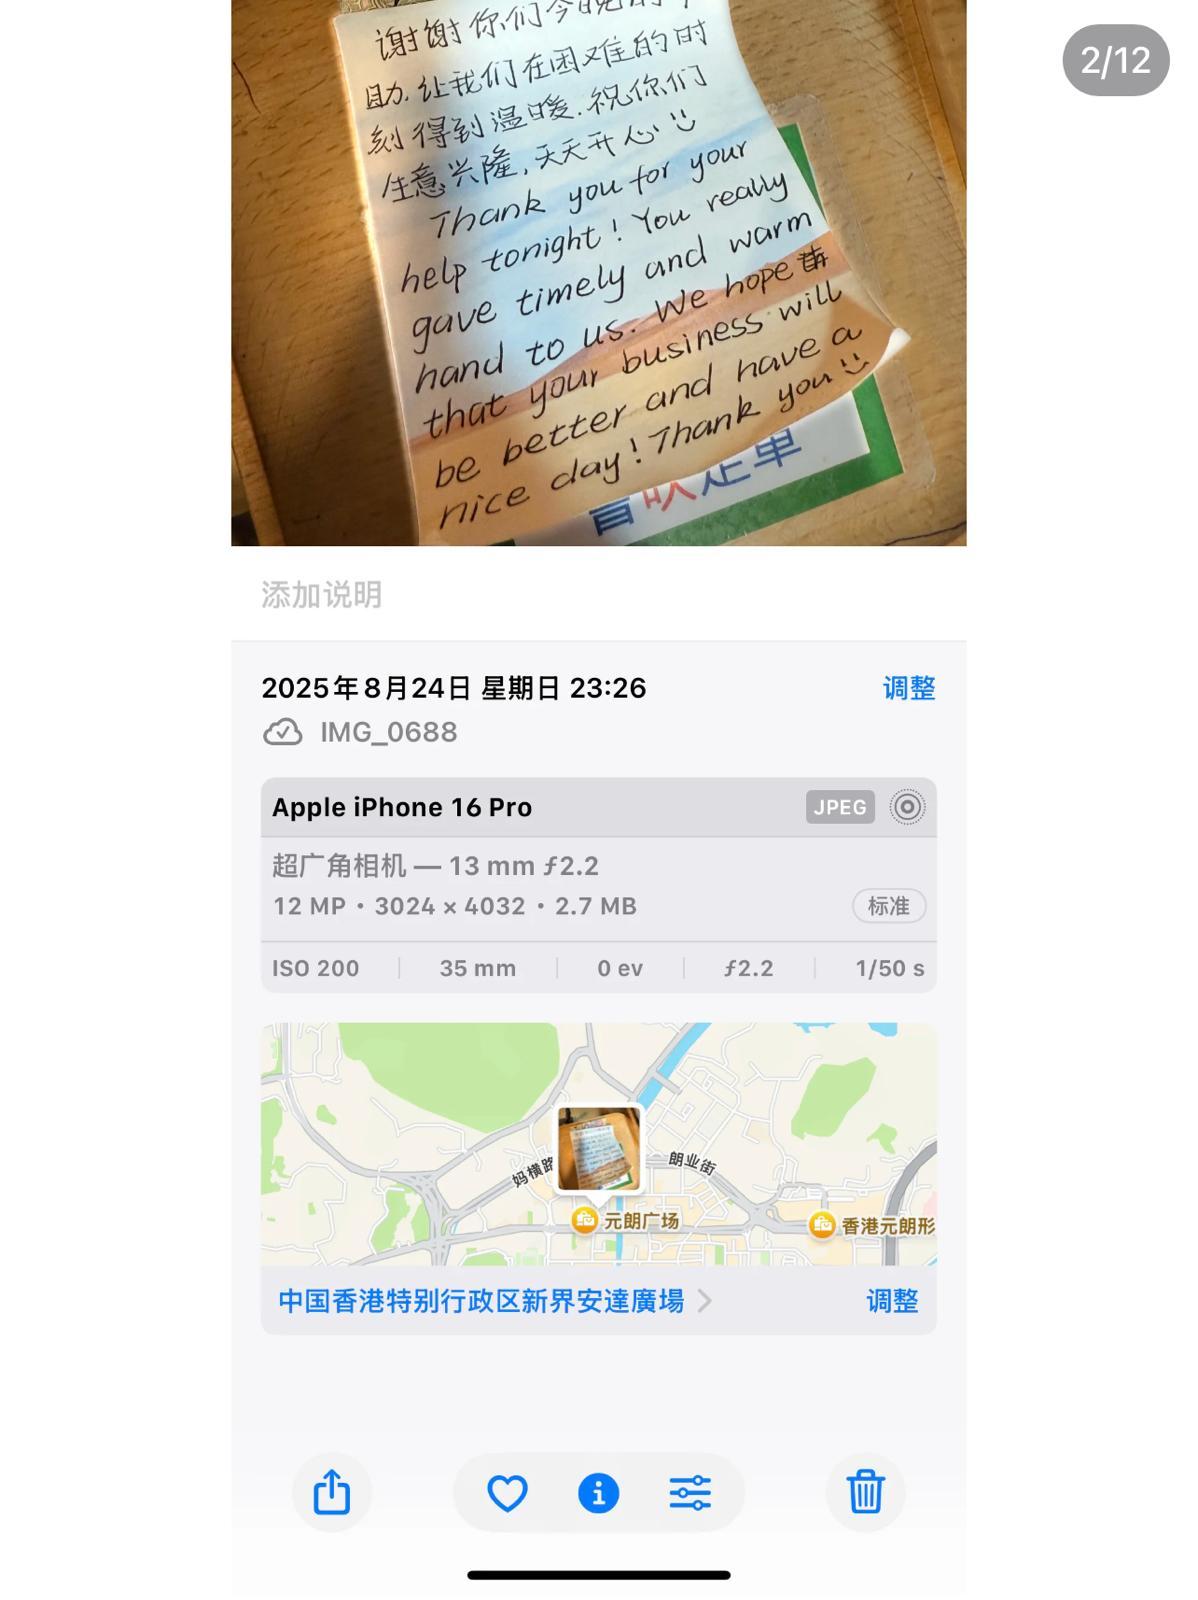 2/12
谢谢你们今晚的
助.让我们在困难的时
刻得到温暖.祝你们
生意兴隆,天天开心
Thank you for your
help tonight! You really
gave timely and warm
hand to us. We hope
that your business will
be better and have a
nice day! Thank you
单
添加说明
2025年8月24日 星期日 23:26
调整
IMG_0688
Apple iPhone 16 Pro
JPEG
超广角相机 — 13 mm ƒ2.2
12 MP • 3024 × 4032 • 2.7 MB
标准
ISO 200
35 mm
0 ev
ƒ2.2
1/50 s
妈横路
朗业街
元朗广场
香港元朗形
中国香港特别行政区新界安達廣場
调整